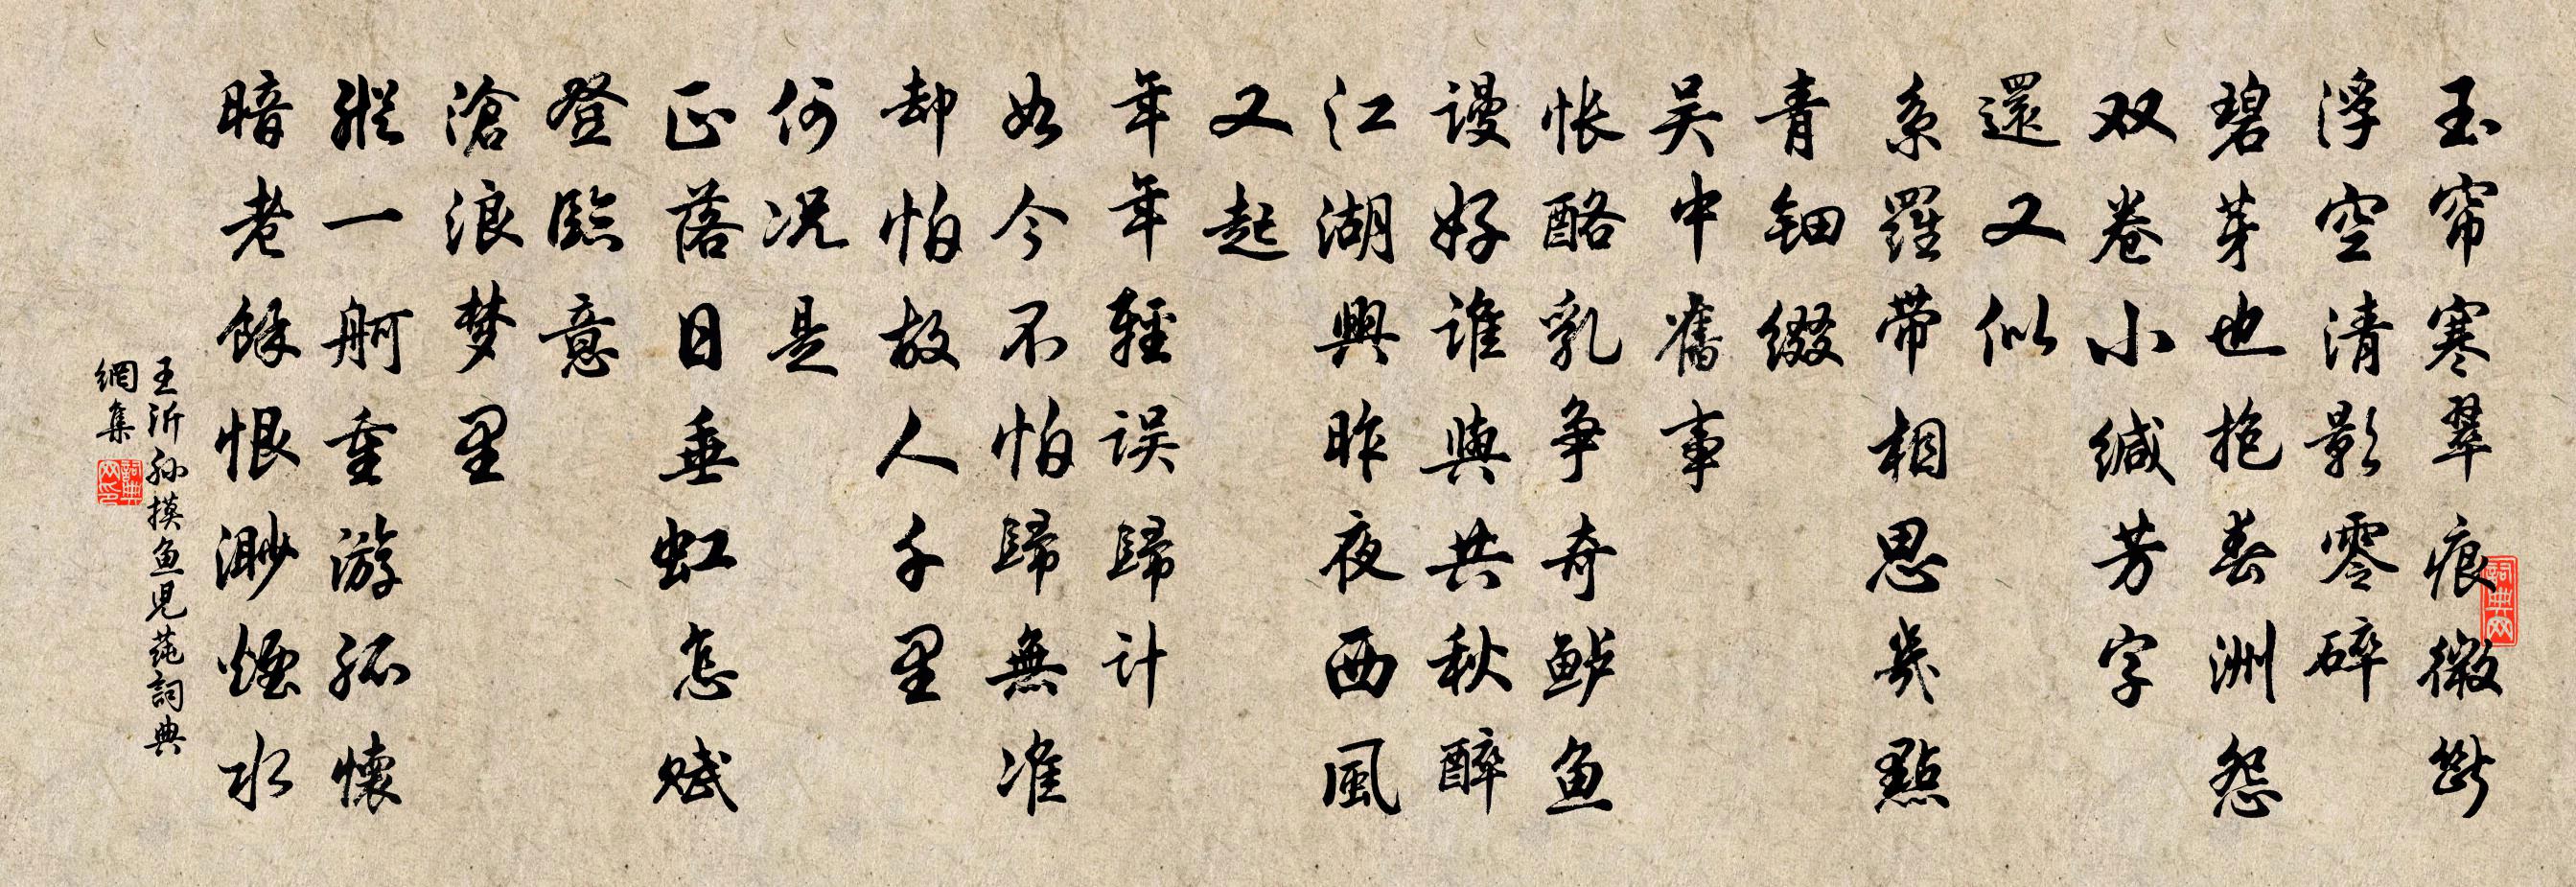 玉帘寒翠痕微断
浮空清影零碎
碧芽也抱春洲怨
双卷小缄芳字
還又似
系羅带相思幾點
青钿缀
吴中舊事
怅酪乳争奇鲈鱼
谩好谁與共秋醉
江湖興昨夜西風
又起
年年輕误歸计
如今不怕歸無准
却怕故人千里
何况是
正落日垂虹怎赋
登臨意
滄浪梦里
縱一舸重游孤懷
暗老餘恨渺煙水
王沂孙摸鱼児莼詞典
網集
詞典网
詞典网印